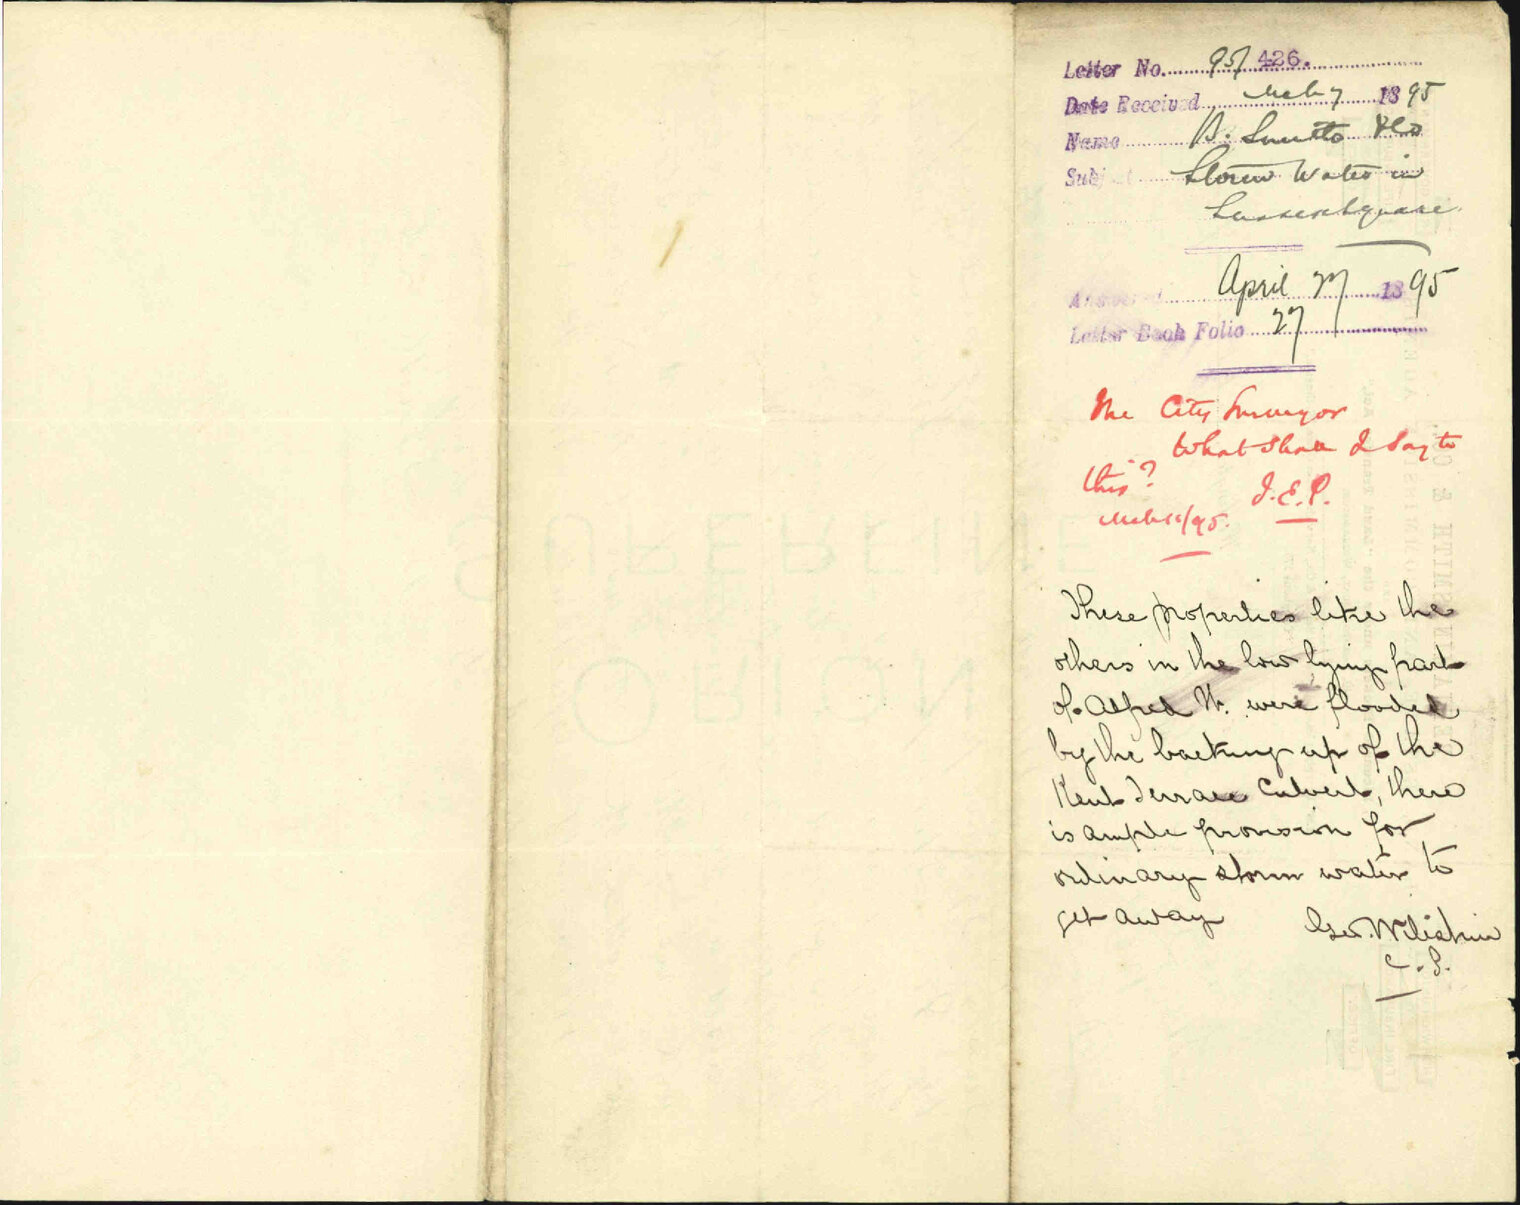 Letter No. 95/426.
Date Received Mch 7 1895
Name B. Smith & Co
Subject Storm Water in
Sussex Square
Answered April 27 1895
Letter Book Folio 27
The City Surveyor
What shall I say to
this?
J.E.P.
Mch 11/95.
These properties like the
others in the low lying part
of Alfred St. were flooded
by the backing up of the
Kent Terrace Culvert, there
is ample provision for
ordinary storm water to
get away
Geo. Wiliston
C.S.
SUPERFINE
ORION